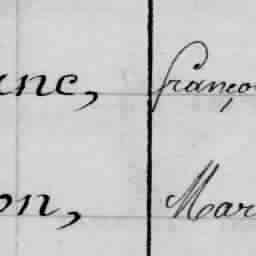 anc, franço
on, Mar